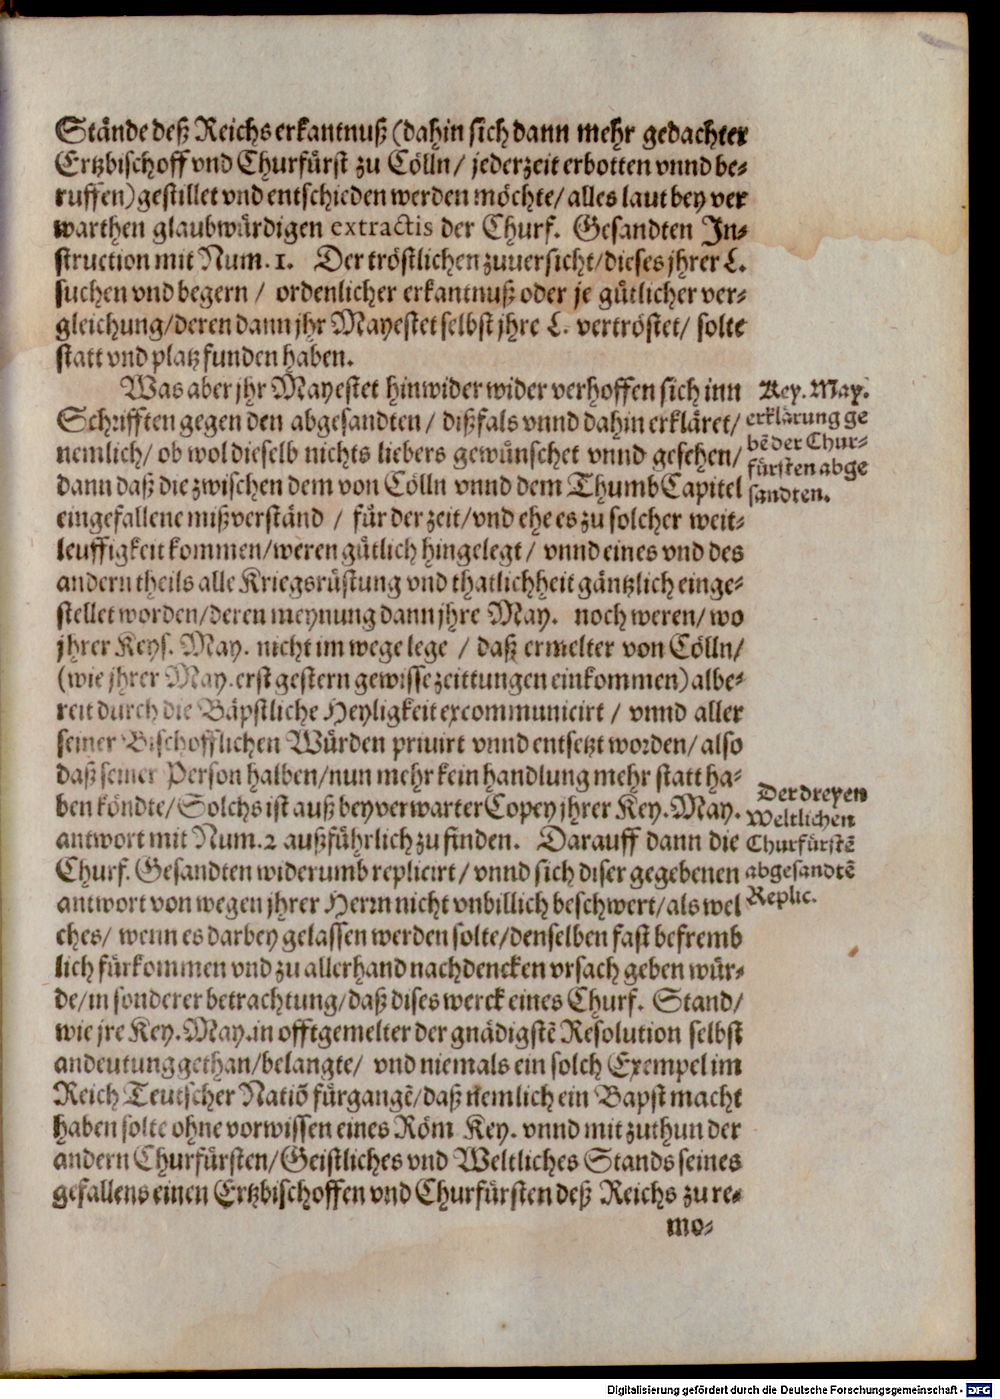 Stände deß Reichs erkantnuß (dahin sich dann mehr gedachter
Ertzbischoff vnd Churfürst zu Cölln/ jederzeit erbotten vnnd be-
ruffen) gestillet vnd entschieden werden möchte/ alles laut bey ver
warthen glaubwürdigen extractis der Churf. Gesandten In-
struction mit Num. 1. Der tröstlichen zuuersicht/ dieses jhrer L.
suchen vnd begern / ordenlicher erkantnuß oder je gütlicher ver-
gleichung/ deren dann jhr Mayestet selbst jhre L. vertröstet/ solte
statt vnd platz funden haben.
Was aber jhr Mayestet hinwider wider verhoffen sich inn
Schrifften gegen den abgesandten / dißfals vnnd dahin erkläret/
nemlich/ ob wol dieselb nichts liebers gewünschet vnnd gesehen/
dann daß die zwischen dem von Cölln vnnd dem ThumbCapitel
eingefallene mißverständ / für der zeit/ vnd ehe es zu solcher weit-
leuffigkeit kommen/ weren gütlich hingelegt / vnnd eines vnd des
andern theils alle Kriegsrüstung vnd thatlichheit gäntzlich einge-
stellet worden/ deren meynung dann jhre May. noch weren/ wo
jhrer Keys. May. nicht im wege lege / daß ermelter von Cölln/
(wie jhrer May. erst gestern gewisse zeittungen einkommen) albe-
reit durch die Bäpstliche Heyligkeit excommunicirt / vnnd aller
seiner Bischofflichen Würden priuirt vnnd entsetzt worden/ also
daß seiner Person halben/ nun mehr kein handlung mehr statt ha-
ben köndte/ Solchs ist auß beyverwarter Copey jhrer Key. May.
antwort mit Num. 2 außführlich zu finden. Darauff dann die
Churf. Gesandten widerumb replicirt/ vnnd sich diser gegebenen
antwort von wegen jhrer Herrn nicht vnbillich beschwert/ als wel
ches/ wenn es darbey gelassen werden solte/ denselben fast befremb
lich fürkommen vnd zu allerhand nachdencken vrsach geben wür-
de/ in sonderer betrachtung/ daß dises werck eines Churf. Stand/
wie jre Key. May. in offtgemelter der gnädigstẽ Resolution selbst
andeutung gethan/ belangte/ vnd niemals ein solch Exempel im
Reich Teutscher Natiõ fürgangẽ/ daß nemlich ein Bapst macht
haben solte ohne vorwissen eines Röm Key. vnnd mit zuthun der
andern Churfürsten/ Geistliches vnd Weltliches Stands seines
gefallens einen Ertzbischoffen vnd Churfürsten deß Reichs zu re-
mo-
Key. May.
erklärung ge
bẽ der Chur-
fürsten abge
sandten.
Der dreyen
Weltlichen
Churfürstẽ
abgesandtẽ
Replic.
Digitalisierung gefördert durch die Deutsche Forschungsgemeinschaft - DFG